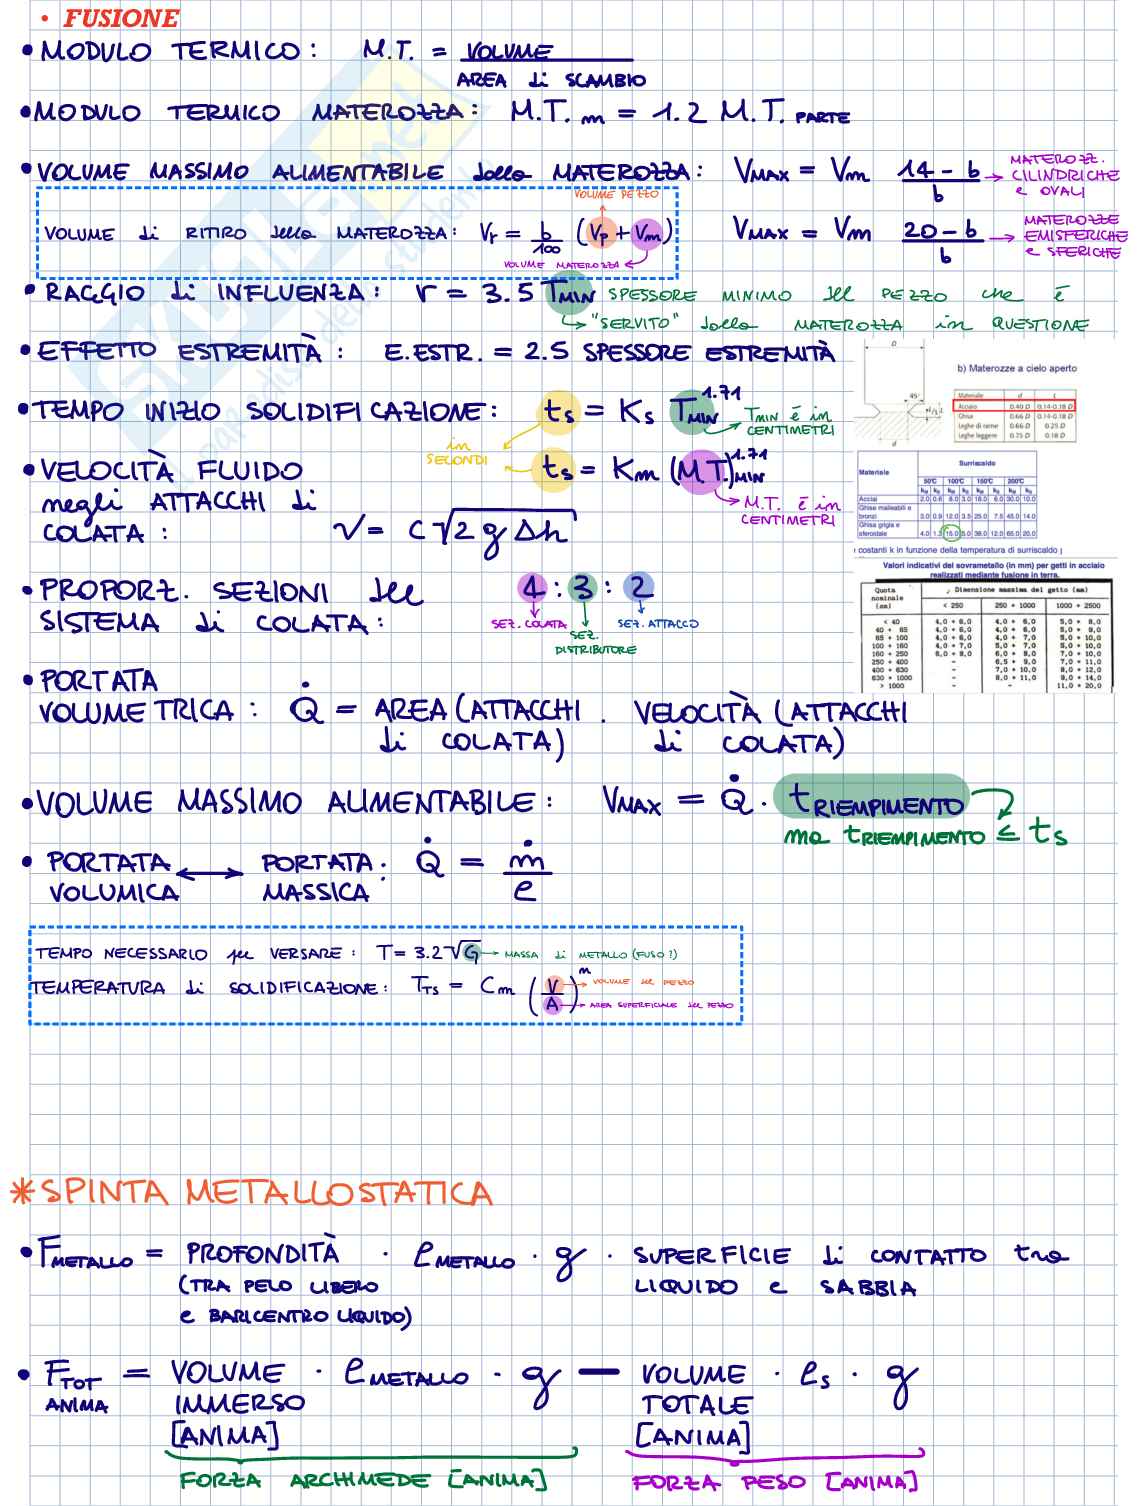 • FUSIONE
• MODULO TERMICO: M.T. = VOLUME / AREA di SCAMBIO
• MODULO TERMICO MATEROZZA: M.T. m = 1.2 M.T. PARTE
• VOLUME MASSIMO ALIMENTABILE dalla MATEROZZA: VMAX = Vm (14 - b) / b → MATEROZZ. CILINDRICHE e OVALI
VMAX = Vm (20 - b) / b → MATEROZZE EMISFERICHE e SFERICHE
VOLUME PEZZO
VOLUME di RITIRO della MATEROZZA: Vr = b/100 (Vp + Vm)
VOLUME MATEROZZA
• RAGGIO di INFLUENZA: r = 3.5 TMIN SPESSORE MINIMO del PEZZO che è
"SERVITO" dalla MATEROZZA in QUESTIONE
• EFFETTO ESTREMITÀ: E.ESTR. = 2.5 SPESSORE ESTREMITÀ
• TEMPO INIZIO SOLIDIFICAZIONE: ts = Ks TMIN^1.71
TMIN è in CENTIMETRI
in SECONDI
ts = Km (M.T.)MIN^1.71
M.T. È in CENTIMETRI
• VELOCITÀ FLUIDO
negli ATTACCHI di
COLATA: v = c√2 g Δh
D
45°
d
b) Materozze a cielo aperto
Materiale d L
Acciaio 0.40 D 0.14-0.18 D
Ghisa 0.66 D 0.14-0.18 D
Leghe di rame 0.66 D 0.25 D
Leghe leggere 0.75 D 0.18 D
Materiale Surriscaldo
50°C 100°C 150°C 200°C
kM kS kM kS kM kS kM kS
Acciai 2.0 0.6 8.0 3.0 18.0 6.0 30.0 10.0
Ghise malleabili e
bronzi 3.0 0.9 12.0 3.5 25.0 7.5 45.0 14.0
Ghisa grigia e
sferoidale 4.0 1.3 15.0 5.0 38.0 12.0 65.0 20.0
costanti k in funzione della temperatura di surriscaldo
Valori indicativi del sovrametallo (in mm) per getti in acciaio
realizzati mediante fusione in terra.
Quota nominale (mm) Dimensione massima del getto (mm)
< 250 250 ÷ 1000 1000 ÷ 2500
< 40 4,0 ÷ 6,0 4,0 ÷ 6,0 5,0 ÷ 8,0
40 ÷ 65 4,0 ÷ 6,0 4,0 ÷ 6,0 5,0 ÷ 9,0
65 ÷ 100 4,0 ÷ 6,0 4,0 ÷ 7,0 5,0 ÷ 10,0
100 ÷ 160 4,0 ÷ 7,0 5,0 ÷ 7,0 5,0 ÷ 10,0
160 ÷ 250 6,0 ÷ 8,0 6,0 ÷ 8,0 7,0 ÷ 10,0
250 ÷ 400 - 6,5 ÷ 9,0 7,0 ÷ 11,0
400 ÷ 630 - 7,0 ÷ 10,0 8,0 ÷ 12,0
630 ÷ 1000 - 8,0 ÷ 11,0 9,0 ÷ 14,0
> 1000 - - 11,0 ÷ 20,0
• PROPORZ. SEZIONI del
SISTEMA di COLATA: 4 : 3 : 2
SEZ. COLATA SEZ. DISTRIBUTORE SEZ. ATTACCO
• PORTATA
VOLUMETRICA: Q̇ = AREA (ATTACCHI di COLATA) . VELOCITÀ (ATTACCHI di COLATA)
• VOLUME MASSIMO ALIMENTABILE: VMAX = Q̇ · tRIEMPIMENTO
ma tRIEMPIMENTO ≤ ts
• PORTATA VOLUMICA ↔ PORTATA MASSICA: Q̇ = ṁ / ρ
TEMPO NECESSARIO per VERSARE: T = 3.2 √G → MASSA di METALLO (FUSO?)
TEMPERATURA di SOLIDIFICAZIONE: TTS = Cm (V/A)^n
VOLUME del PEZZO
AREA SUPERFICIALE del PEZZO
* SPINTA METALLOSTATICA
• FMETALLO = PROFONDITÀ · ρMETALLO · g · SUPERFICIE di CONTATTO tra
(TRA PELO LIBERO LIQUIDO e SABBIA
e BARICENTRO LIQUIDO)
• FTOT ANIMA = VOLUME IMMERSO [ANIMA] · ρMETALLO · g − VOLUME TOTALE [ANIMA] · ρs · g
FORZA ARCHIMEDE [ANIMA] FORZA PESO [ANIMA]